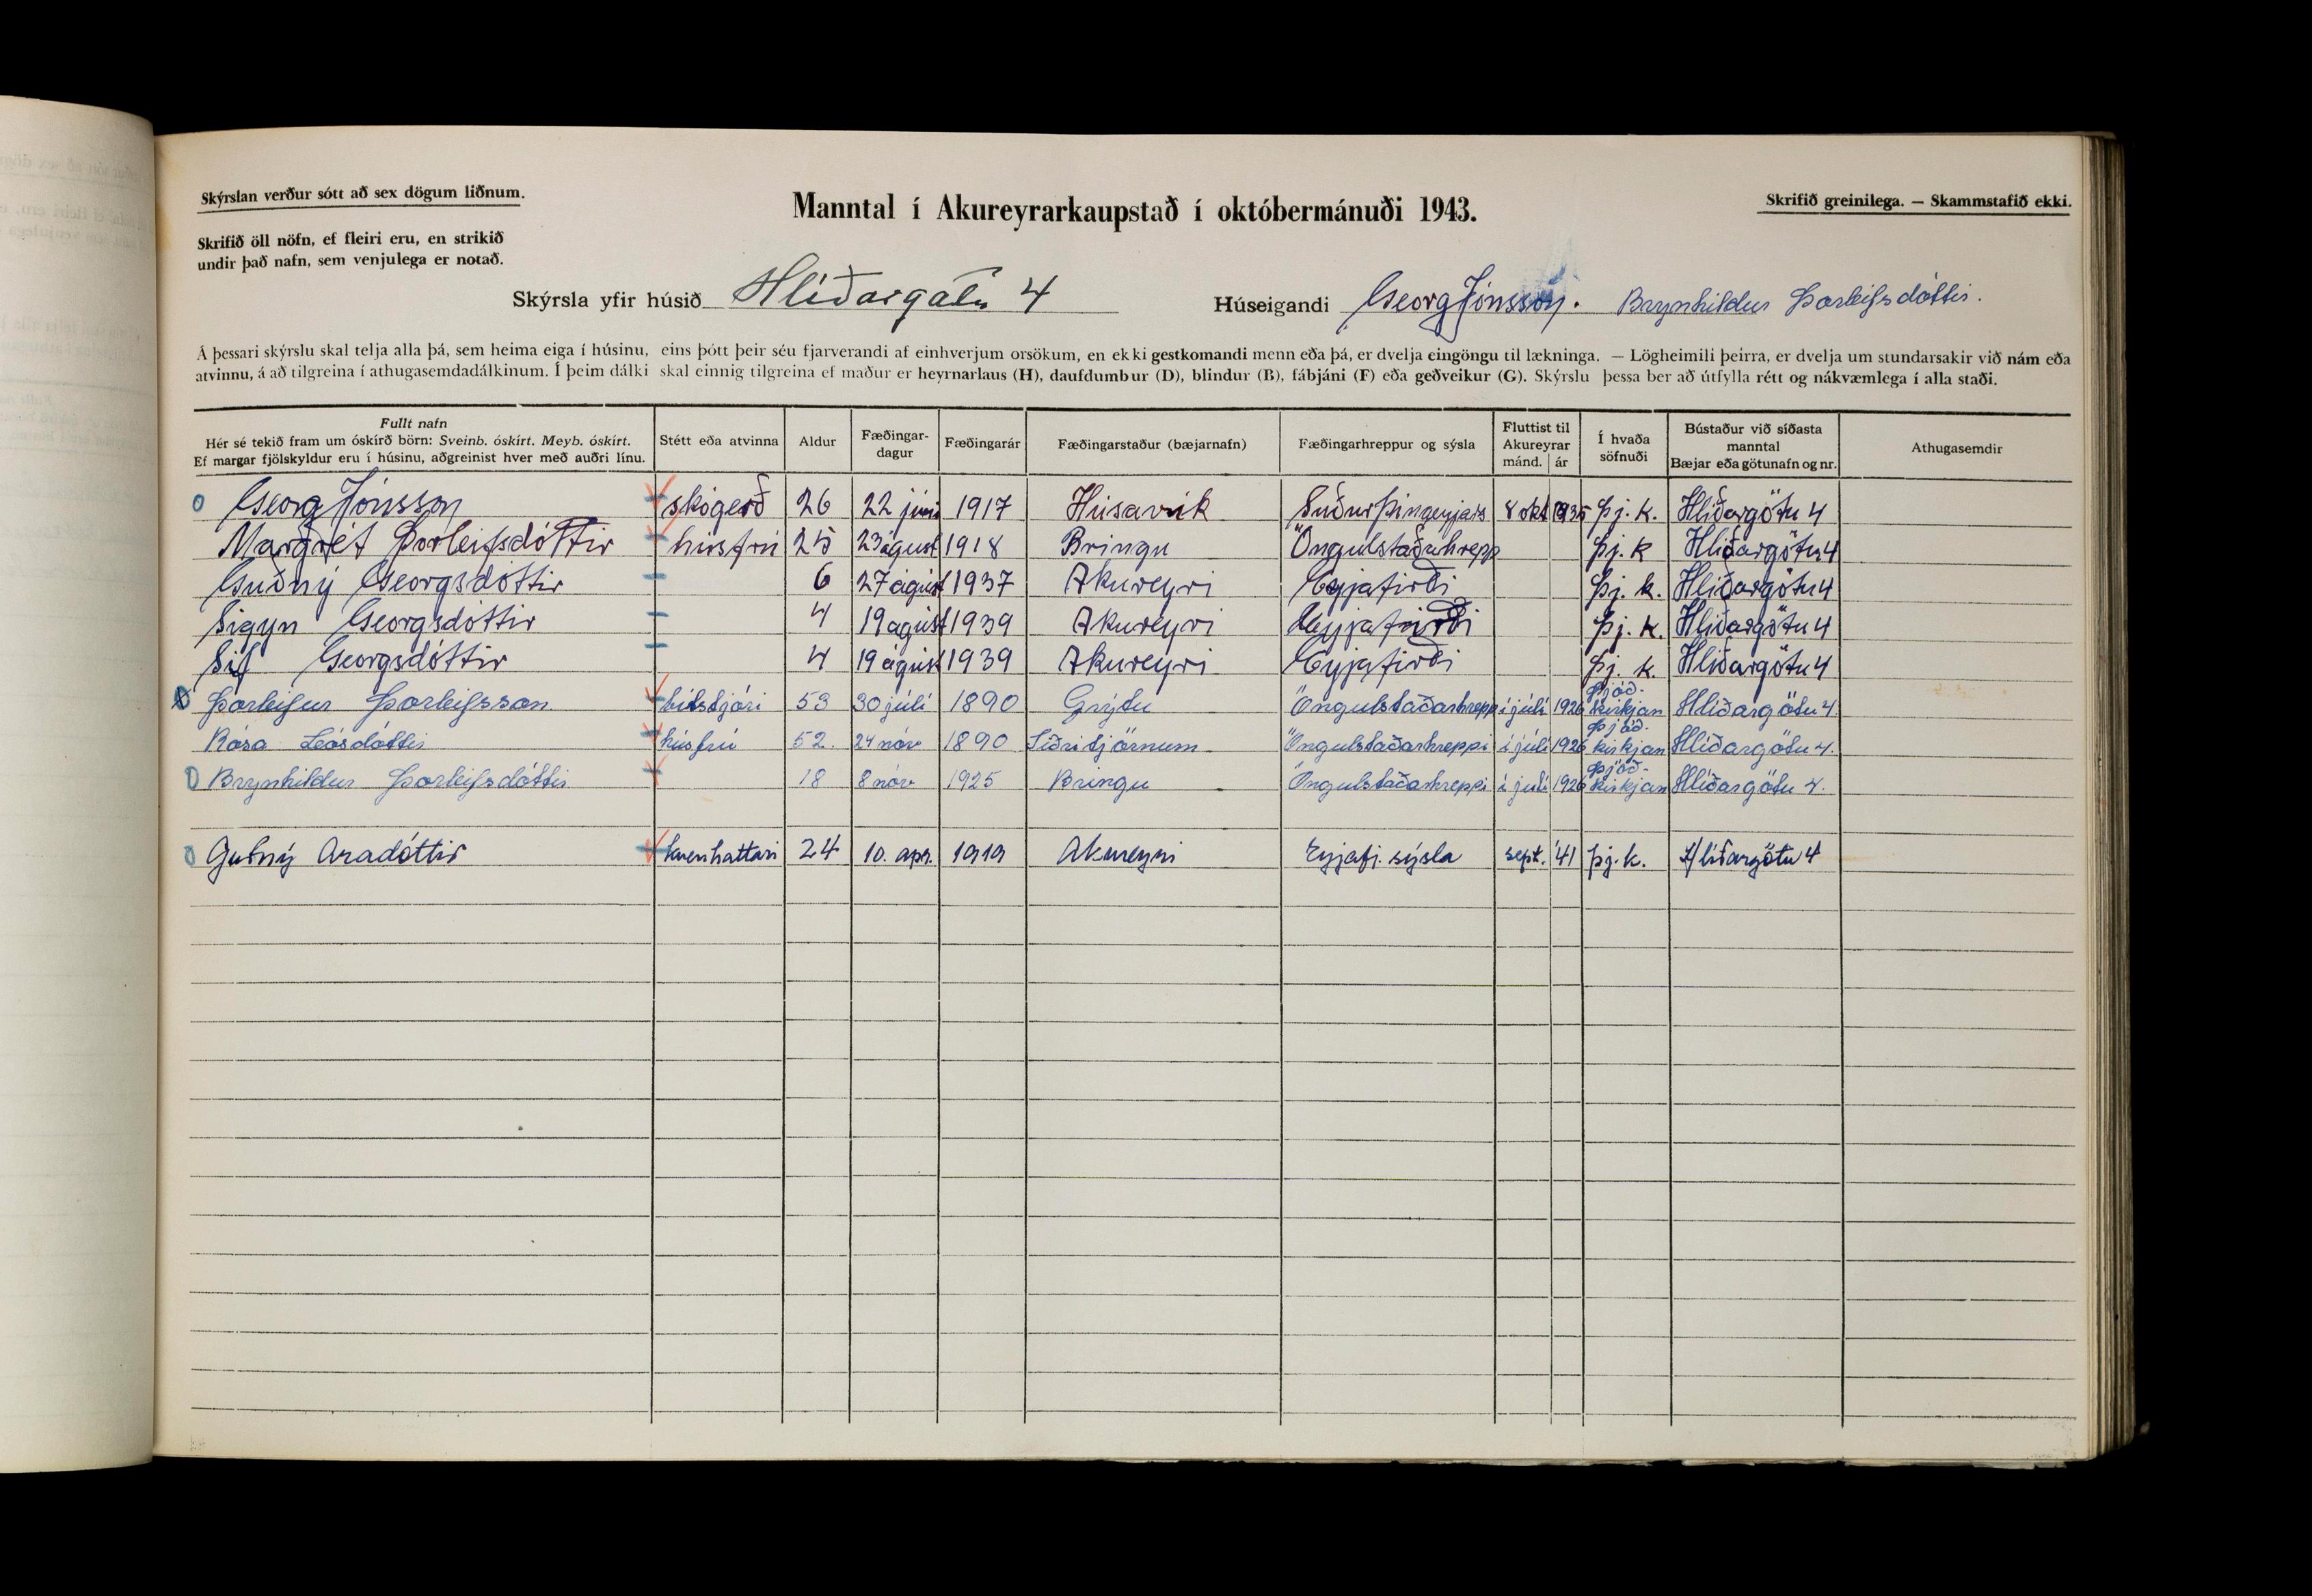 Skýrslan verður sótt að sex dögum liðnum.
Manntal í Akureyrarkaupstað í októbermánuði 1943.
Skrifið greinilega. — Skammstafið ekki.
Skrifið öll nöfn, ef fleiri eru, en strikið
undir það nafn, sem venjulega er notað.
Skýrsla yfir húsið Hlíðargötu 4 Húseigandi Georg Jónsson. Brynhildur Þorleifsdóttir.
Á þessari skýrslu skal telja alla þá, sem heima eiga í húsinu, eins þótt þeir séu fjarverandi af einhverjum orsökum, en ekki gestkomandi menn eða þá, er dvelja eingöngu til lækninga. — Lögheimili þeirra, er dvelja um stundarsakir við nám eða
atvinnu, á að tilgreina í athugasemdadálkinum. Í þeim dálki skal einnig tilgreina ef maður er heyrnarlaus (H), daufdumbur (D), blindur (B), fábjáni (F) eða geðveikur (G). Skýrslu þessa ber að útfylla rétt og nákvæmlega í alla staði.
Fullt nafn
Hér sé tekið fram um óskírð börn: Sveinb. óskírt. Meyb. óskírt.
Ef margar fjölskyldur eru í húsinu, aðgreinist hver með auðri línu.
Stétt eða atvinna
Aldur
Fæðingar-
dagur
Fæðingarár
Fæðingarstaður (bæjarnafn)
Fæðingarhreppur og sýsla
Fluttist til
Akureyrar
mánd. | ár
Í hvaða
söfnuði
Bústaður við síðasta
manntal
Bæjar eða götunafn og nr.
Athugasemdir
Georg Jónsson skógerð 26 22 júní 1917 Húsavík Suður Þingeyjars 8 okt 1935 Þj. k. Hlíðargötu 4
Margrét Þorleifsdóttir húsfrú 25 23 ágúst 1918 Bringu Öngulstaðahrepp Þj. k Hlíðargötu 4
Guðný Georgsdóttir 6 27 ágúst 1937 Akureyri Eyjafirði Þj. k. Hlíðargötu 4
Sigyn Georgsdóttir 4 19 ágúst 1939 Akureyri Eyjafirði Þj. k. Hlíðargötu 4
Sif Georgsdóttir 4 19 ágúst 1939 Akureyri Eyjafirði Þj. k. Hlíðargötu 4
Þorleifur Þorleifsson bílstjóri 53 30 júlí 1890 Grýtu Öngulstaðarhrepp í júlí 1926 Þjóð-kirkjan Hlíðargötu 4.
Rósa Leósdóttir húsfrú 52. 24 nóv 1890 Síðritjörnum Öngulstaðarhreppi í júlí 1926 Þjóð-kirkjan Hlíðargötu 4.
Brynhildur Þorleifsdóttir 18 8 nóv 1925 Bringu Öngulstaðarhreppi í júlí 1926 Þjóð-kirkjan Hlíðargötu 4.
Guðný Aradóttir 24 10. apr. 1919 Akureyri Eyjafj. sýsla sept. '41 þj. k. Hlíðargötu 4